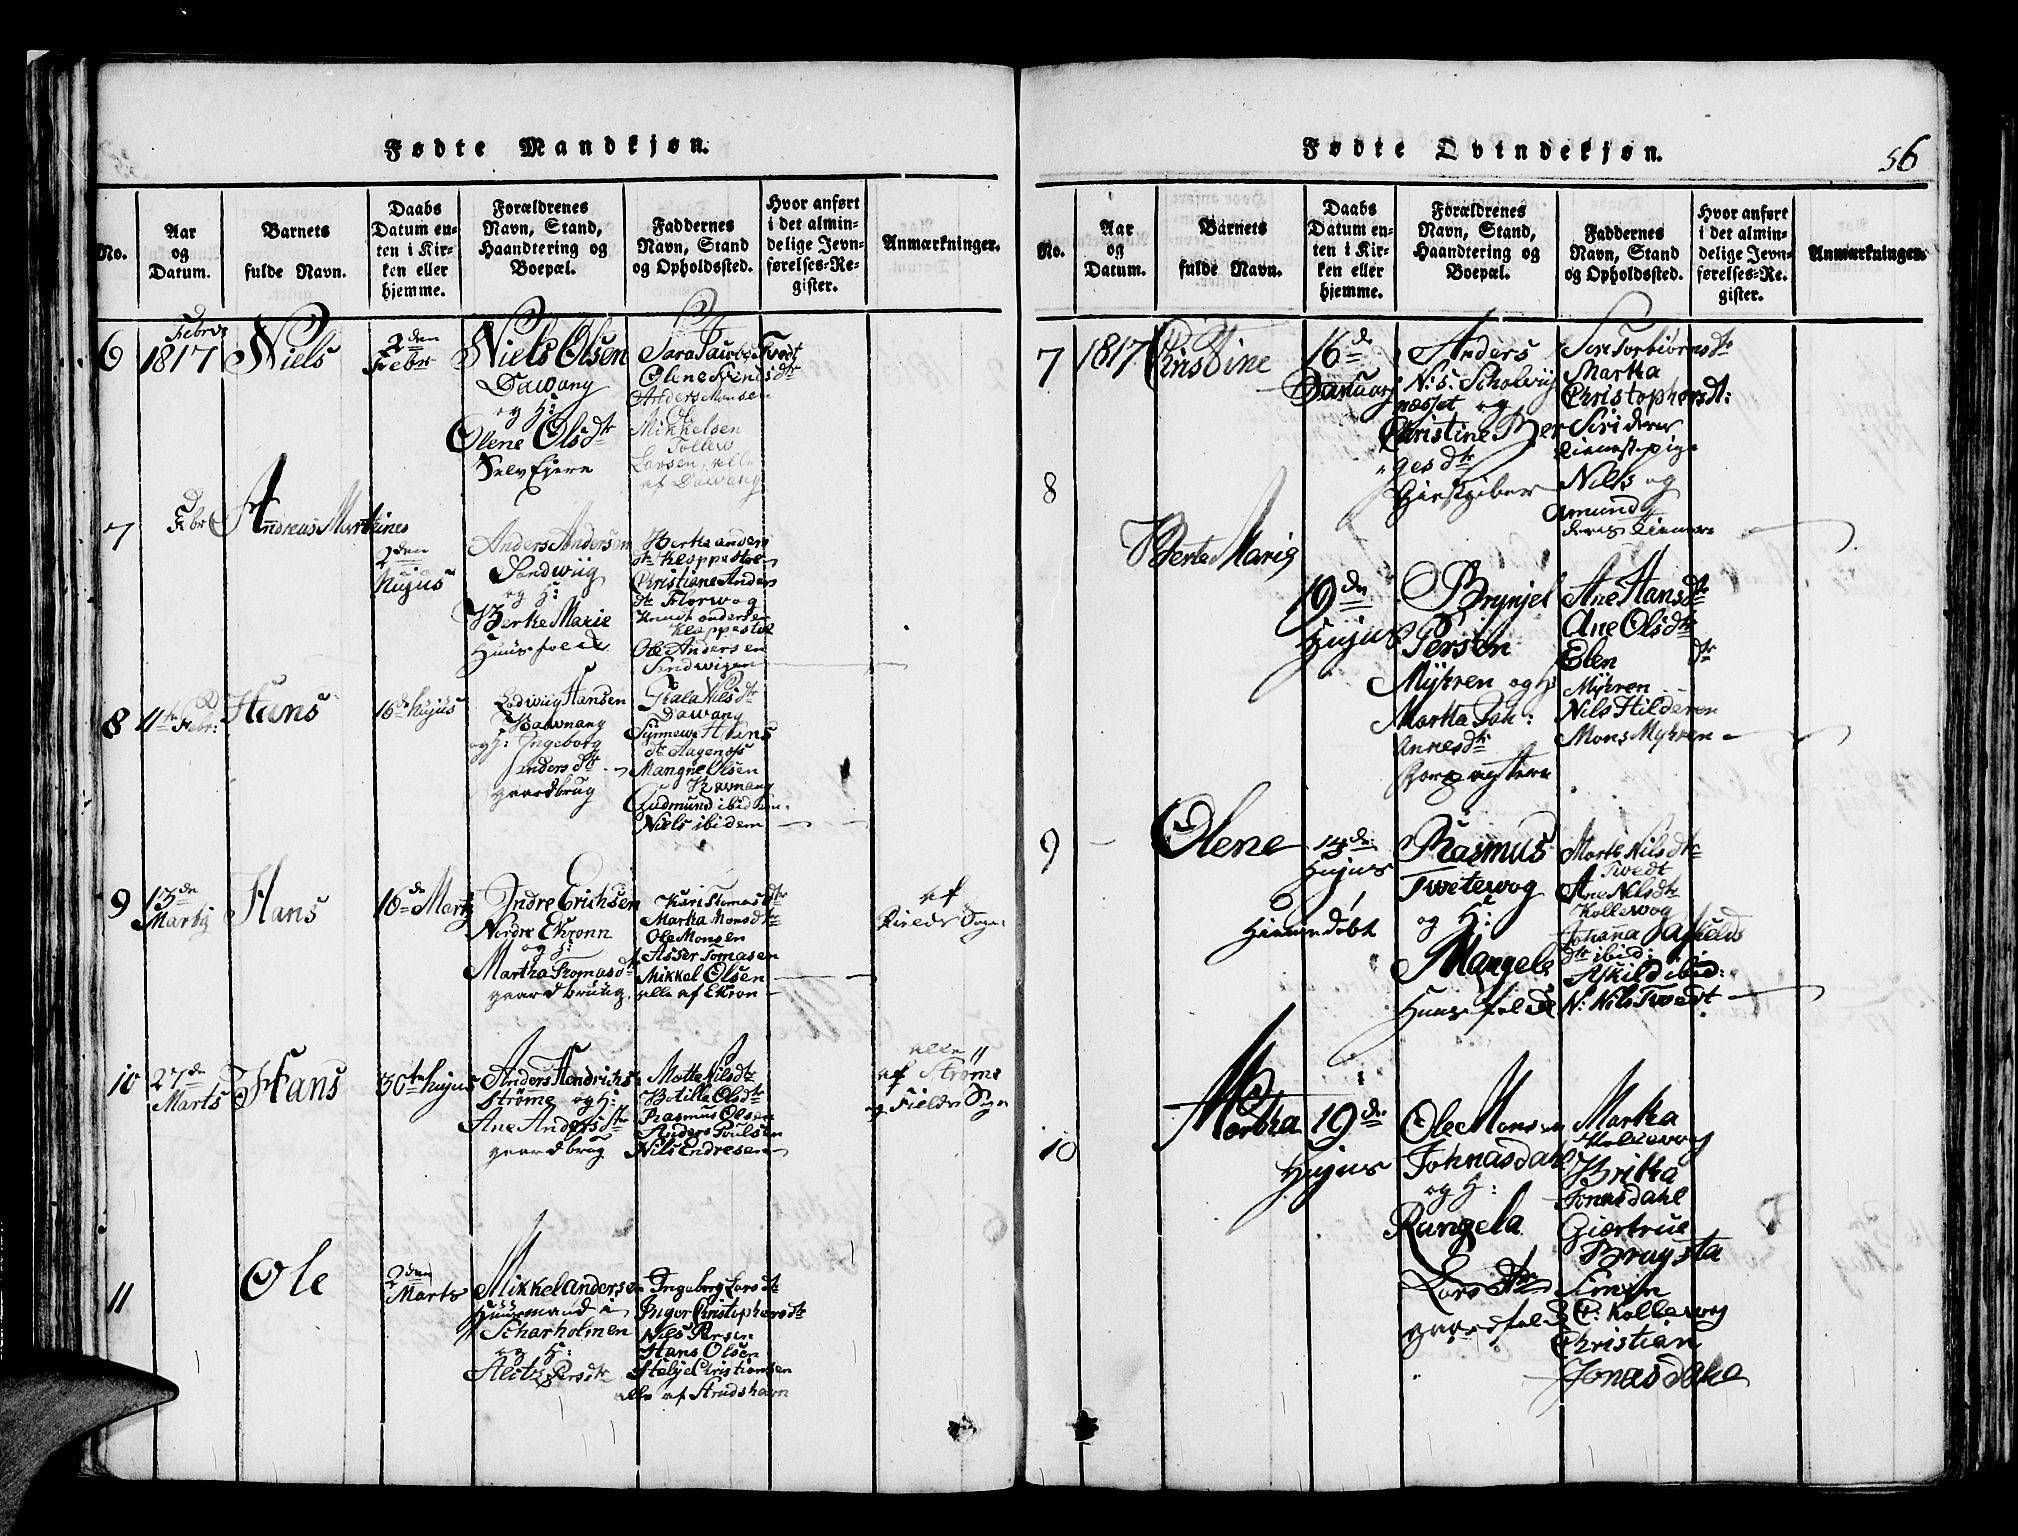 Fødte Mandkjøn.
No.
Aar
og
Datum.
Barnets
fulde Navn.
Daabs
Datum en-
ten i Kir-
ken eller
hjemme.
Forældrenes
Navn, Stand,
Haandtering og
Boepæl.
Faddernes
Navn, Stand
og Opholdssted.
Hvor anført
i det almin-
delige Jevn-
førelses-Re-
gister.
Anmærkninger.
6
Febr
1817
Niels
2den
Febr
Niels Olsen
Dawang
og H:
Olene Olsdtr
Selv Ejere
Olene Svendsdtr
Anders Monsen
Mikkelsen
Larsen, alle
af Dawang
7
Febr
Andreas Martinus
2den
hujus
Anders Andersen
Sandwiig
og H:
Berte Marie
Huusfolk
Christiane Anders
dtr Florwog
Knudt Andersen
Kleppestøe
Ole Andersen
Sandwigen
8
11te Febr:
Hans
16de hujus
Lodwiig Hansen
Rawnang
og H: Ingeborg
Andersdtr
gaardbrug
Nilsdtr
Dawang
Synnewe Hans
dtr Hagenæs
Mangne Olsen
Rawnang
Gudmund ibidem
Niels ibidem
9
13de
Marty
Hans
16de Marty
Andre Erichsen
Nordre Ekronn
og H:
Martha Tomasdtr
gaardbruug.
Kari Tomasdtr
Marta Monsdtr
Ole Monsen
Asser Tomasen
Mikkel Olsen
alle af Ekron
af
Fields Sogn
10
27de
Marts
Hans
30te hujus
Anders Hendrichs:
Strøme og H:
Ane Andersdtr
gaardbrug
Motte Nilsdtr
Botille Olsdtr
Rasmus Olsen
Anders Poulsen
Nils Endresen
alle
af Strøme
og Fields Sogn
11
Ole
2den
Marts
Mikkel Andersen
Huusmand i
Scharholmen
og H:
Alitz Persdtr
Ingeborg Larsdtr
Inger Christophersdtr
Nils Persen
Hans Olsen
Helje Christiansen
alle af Strudshavn
Fødte Qvindekjøn.
56
No.
Aar
og
Datum.
Barnets
fulde Navn.
Daabs
Datum en-
ten i Kir-
ken eller
hjemme.
Forældrenes
Navn, Stand,
Haandtering og
Boepæl.
Faddernes
Navn, Stand
og Opholdssted.
Hvor anført
i det almin-
delige Jevn-
førelses-Re-
gister.
Anmærkninger.
7
1817
Christine
16de
Januarj
Anders
N:s: Scholwig
næsset og
Christine Ber
gesdtr
Giestgiber
Siri Torbiørnsdtr
Martha
Christophersdt:
Siri deres
tienestepige
Nils og
Amund
deres tienere
8
Berte Marie
19de
Hujus
Brynjel
Persen
Myhren og H:
Marta Joh:
annesdtr
Ane Hansdtr
Ane Olsdtr
Elen dtr
Myhren
Nils Hilderen
Mons Myhren
9
Olene
14de
Hujus
Hiemedøbt
Rasmus
Twetewog
og H:
Mangele
Huusfolk
Marte Nilsdtr
Twedt
Ane Nilsdtr
Kollewog
Johanna Askields
dtr ibid:
Askild ibid:
N: Nils Twedt
10
Martha
19de
Hujus
Ole Monsen
Johnasdahl
og H:
Rangela
Larsdtr
gaardfolk
Martha
Kollewog
Britha
Jonasdahl
Giertrue
Bragsta
Simen
P: Kollewog
Christian
Jonasdahl